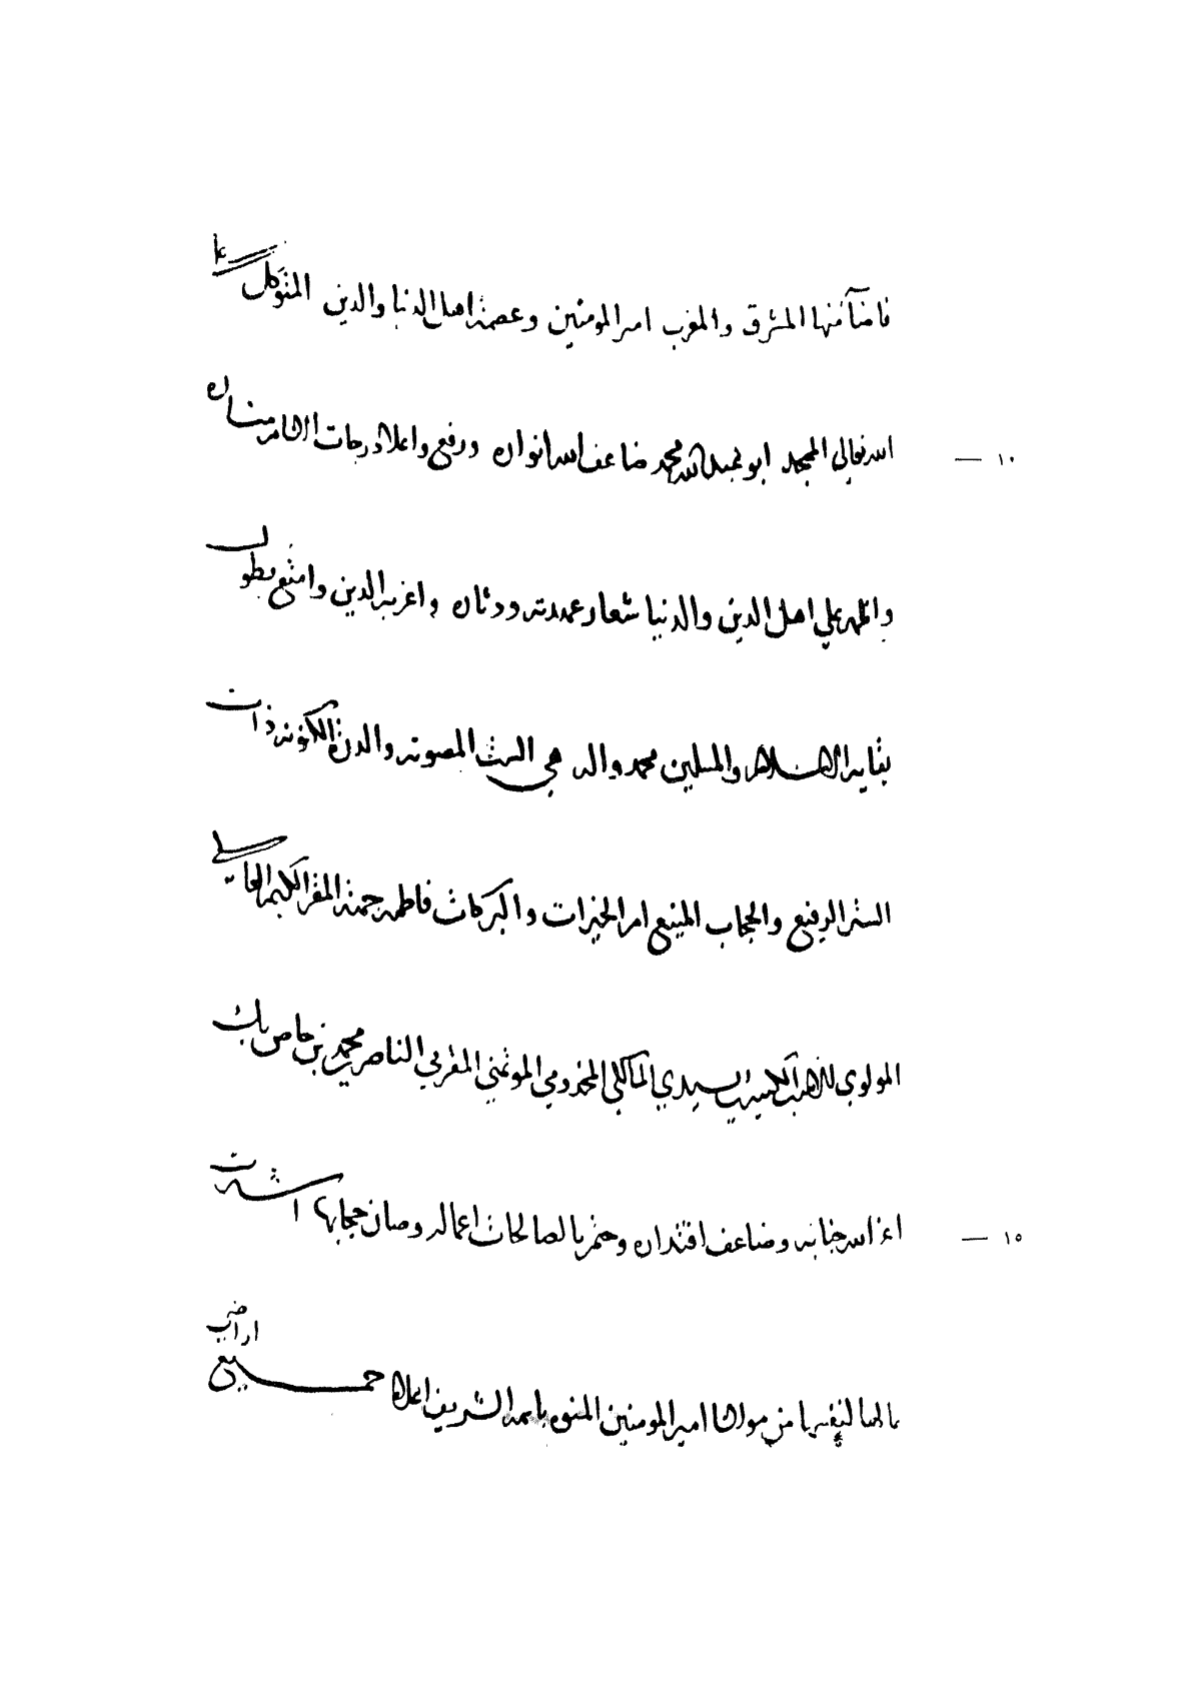 فاضآ منها المشرق والمغرب امير المومنين وعصمة اهل الدنيا والدين المتوكل على
١٠ — الله تعالى الممجد ابو عبد الله محمد ضاعف الله انواره ورفع واعلا درجات مناره
واظهر على اهل الدين والدنيا شعار عهدته ودثاره واعز به الدين وامتع بطول
بقايه الاسلام والمسلمين محمد واله هي الست المصونه والدرة المكنونه ذات
الستر الرفيع والحجاب المنيع ام الخيرات والبركات فاطمه جهة المقر الكريم العالي
المولوي السيدي المالكي المخدومي المقري الناصر محمد بن خاص بك
١٥ — اعز الله جنابه وضاعف اقتداره وختم بالصالحات اعماله وصان حجابها اشترت
بمالها لنفسها من مولانا امير المومنين المنوه باسمه الشريف اعلاه جميع اراضي